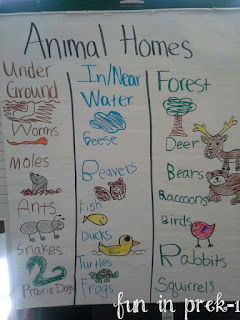 Animal Homes
Under
Ground
Worms
Moles
Ants
Snakes
Prairie Dogs
In/Near
Water
Geese
Beavers
Fish
Ducks
Turtles
Frogs
Forest
Deer
Bears
Raccoons
Birds
Rabbits
Squirrels
fun in prek-1